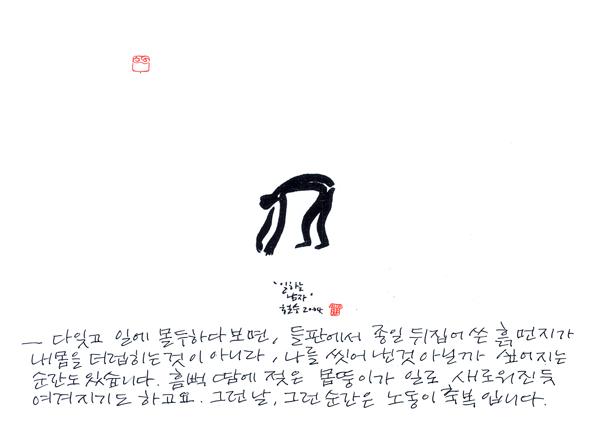 '일하는
남자'
철수 2004
— 다잊고 일에 몰두하다보면, 들판에서 종일 뒤집어 쓴 흙먼지가
내몸을 더럽히는것이 아니라, 나를 씻어 낸것 아닐까 싶어지는
순간도 왔습니다. 흠뻑 땀에 젖은 몸뚱이가 일로 새로워진듯
여겨지기도 하고요. 그런날, 그런순간은 노동이 축복입니다.